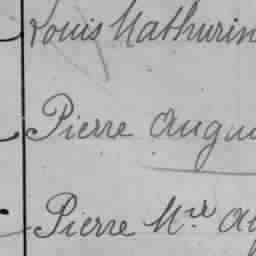 Louis Mathurin
Pierre Augu
Pierre M.re Au